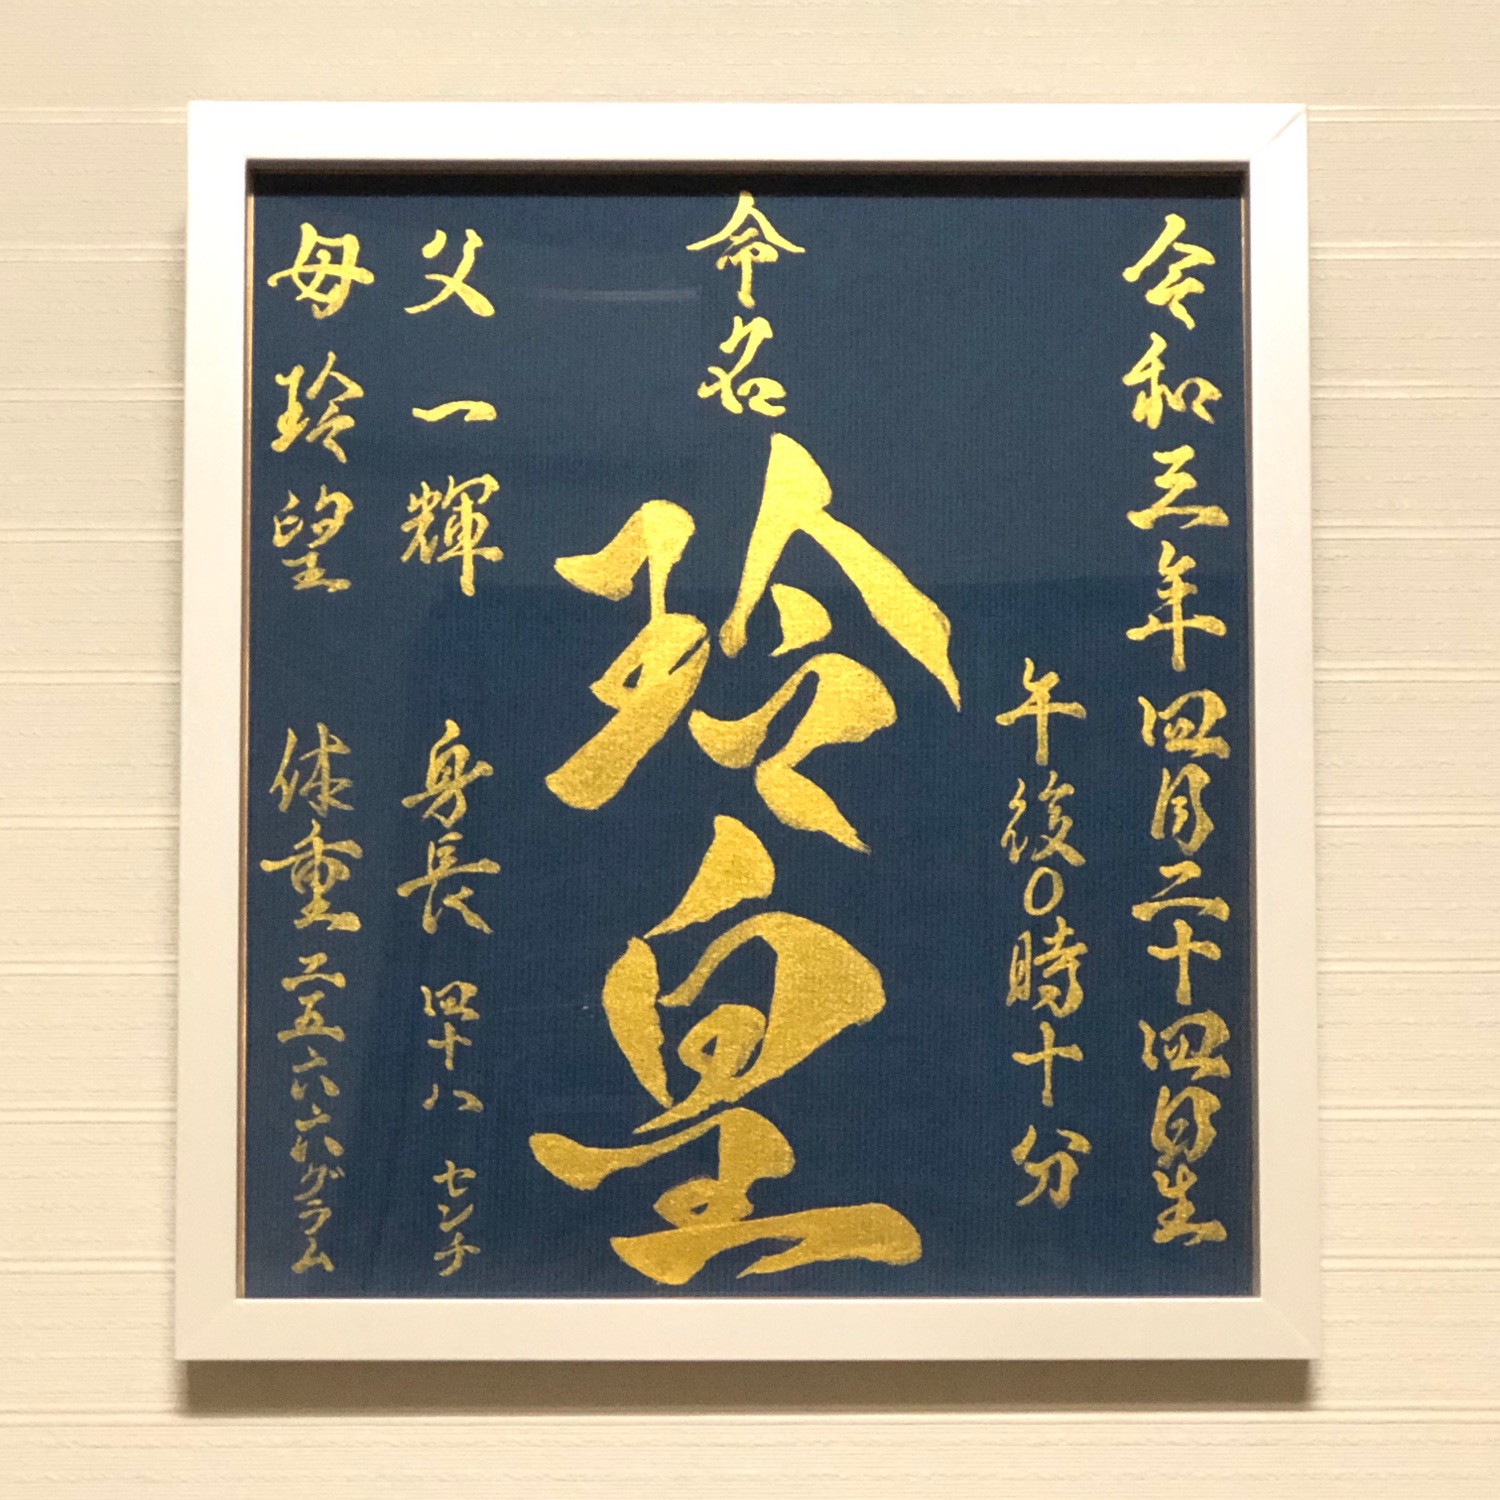 令和三年四月二十四日生
午後0時十分
命名
玲皇
父 一輝
身長 四十八 センチ
母 玲望
体重 二五六六グラム